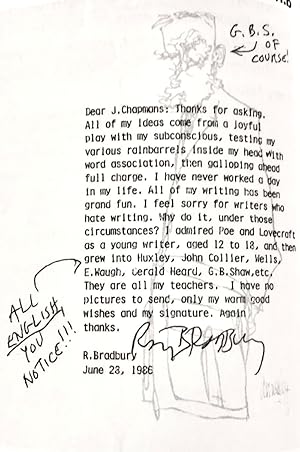 G.B.S.
OF
COURSE!
Dear J.Chapmans: Thanks for asking.
All of my ideas come from a joyful
play with my subconscious, testing my
various rainbarrels inside my head with
word association, then galloping ahead
full charge. I have never worked a day
in my life. All of my writing has been
grand fun. I feel sorry for writers who
hate writing. Why do it, under those
circumstances? I admired Poe and Lovecraft
as a young writer, aged 12 to 18, and then
grew into Huxley, John Collier, Wells,
E.Waugh, Gerald Heard, G.B.Shaw,etc.
They are all my teachers. I have no
pictures to send, only my warm good
wishes and my signature. Again
thanks.
Ray BRADBURY
R.Bradbury
June 28, 1986
ALL
ENGLISH
YOU
NOTICE!!!